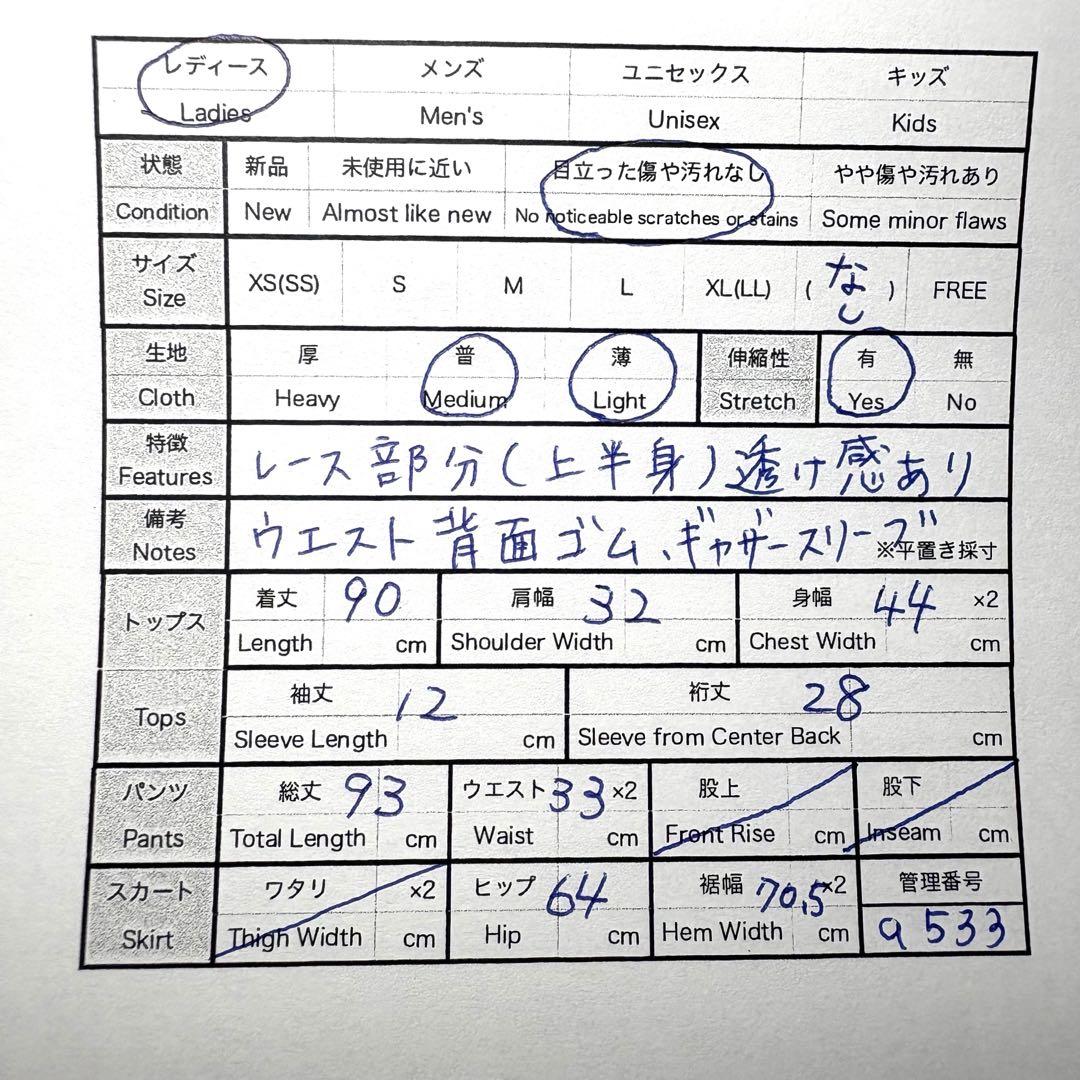 レディース メンズ ユニセックス キッズ
Ladies Men's Unisex Kids
状態 新品 未使用に近い 目立った傷や汚れなし やや傷や汚れあり
Condition New Almost like new No noticeable scratches or stains Some minor flaws
サイズ
Size XS(SS) S M L XL(LL) ( なし ) FREE
生地 厚 普 薄 伸縮性 有 無
Cloth Heavy Medium Light Stretch Yes No
特徴
Features レース部分(上半身)透け感あり
備考
Notes ウエスト背面ゴム、ギャザースリーブ ※平置き採寸
トップス 着丈 90 肩幅 32 身幅 44 ×2
Length cm Shoulder Width cm Chest Width cm
Tops 袖丈 12 裄丈 28
Sleeve Length cm Sleeve from Center Back cm
パンツ 総丈 93 ウエスト 33 ×2 股上 股下
Pants Total Length cm Waist cm Front Rise cm Inseam cm
スカート ワタリ ×2 ヒップ 64 裾幅 70.5 ×2 管理番号
Skirt Thigh Width cm Hip cm Hem Width cm a533